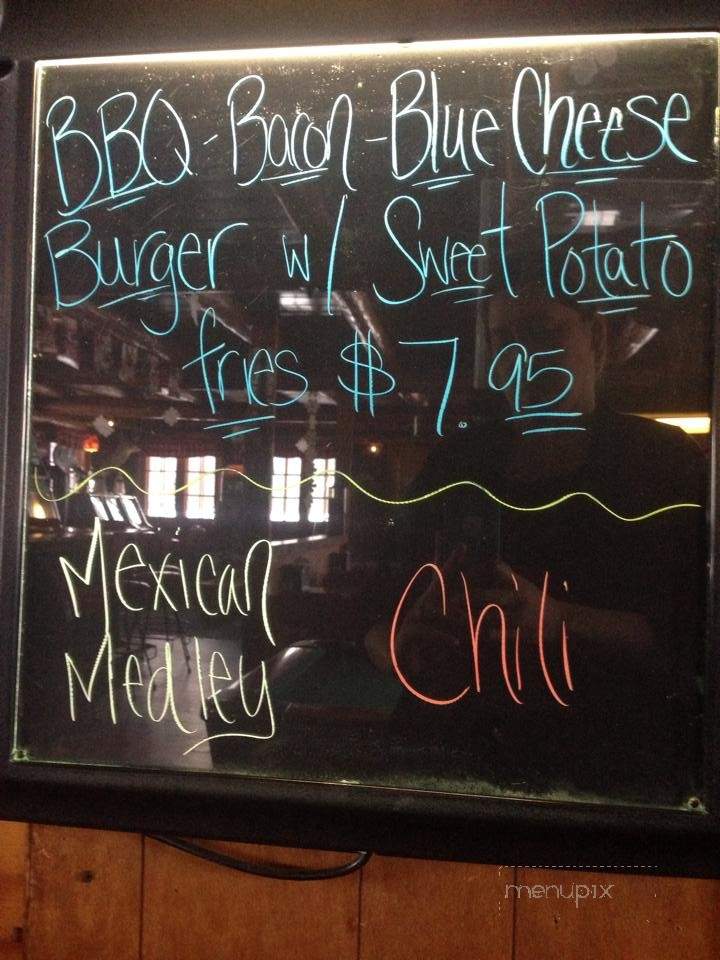 BBQ - Bacon - Blue Cheese
Burger w/ Sweet Potato
fries $7.95
Mexican
Medley
Chili
menupix